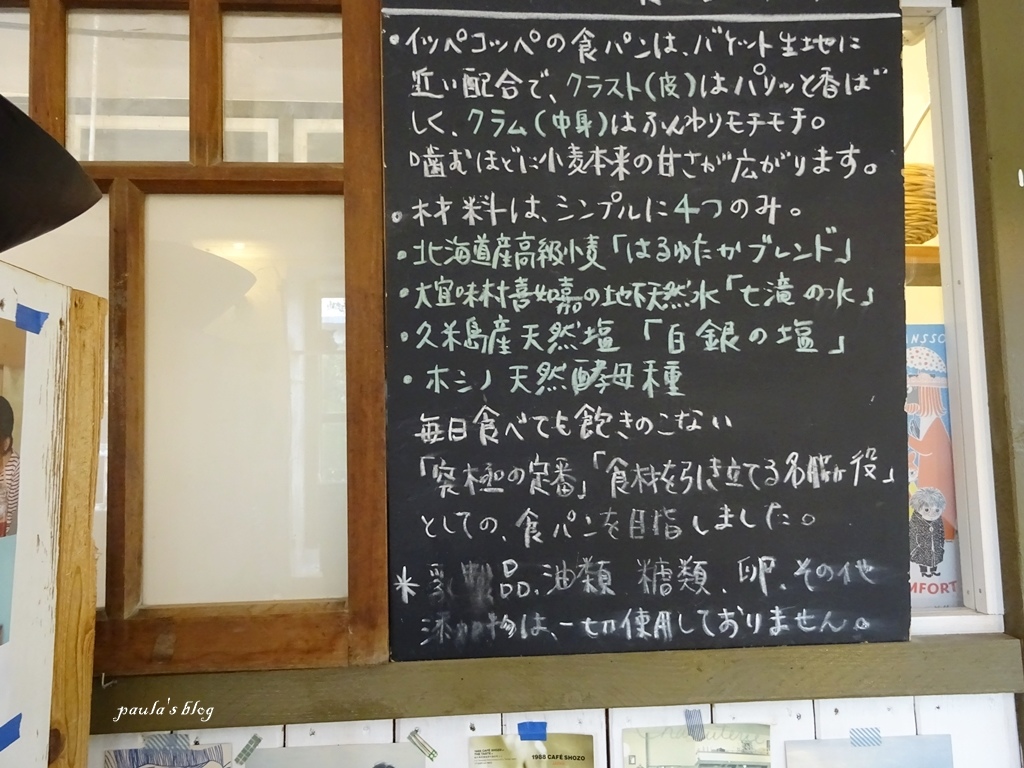 ・イッペコッペの食パンは、バゲット生地に
近い配合で、クラスト(皮)はパリッと香ば
しく、クラム(中身)はふんわりモチモチ。
噛むほどに小麦本来の甘さが広がります。
・材料は、シンプルに4つのみ。
・北海道産高級小麦「はるゆたかブレンド」
・大宜味村喜如嘉の地下天然水「七滝の水」
・久米島産天然塩「白銀の塩」
・ホシノ天然酵母種
毎日食べても飽きのこない
「究極の定番」「食材を引き立てる名脇役」
としての、食パンを目指しました。
*乳製品、油類、糖類、卵、その他
添加物は、一切使用しておりません。
NSSO
MFORT
paula's blog
1988 CAFE SHOZO